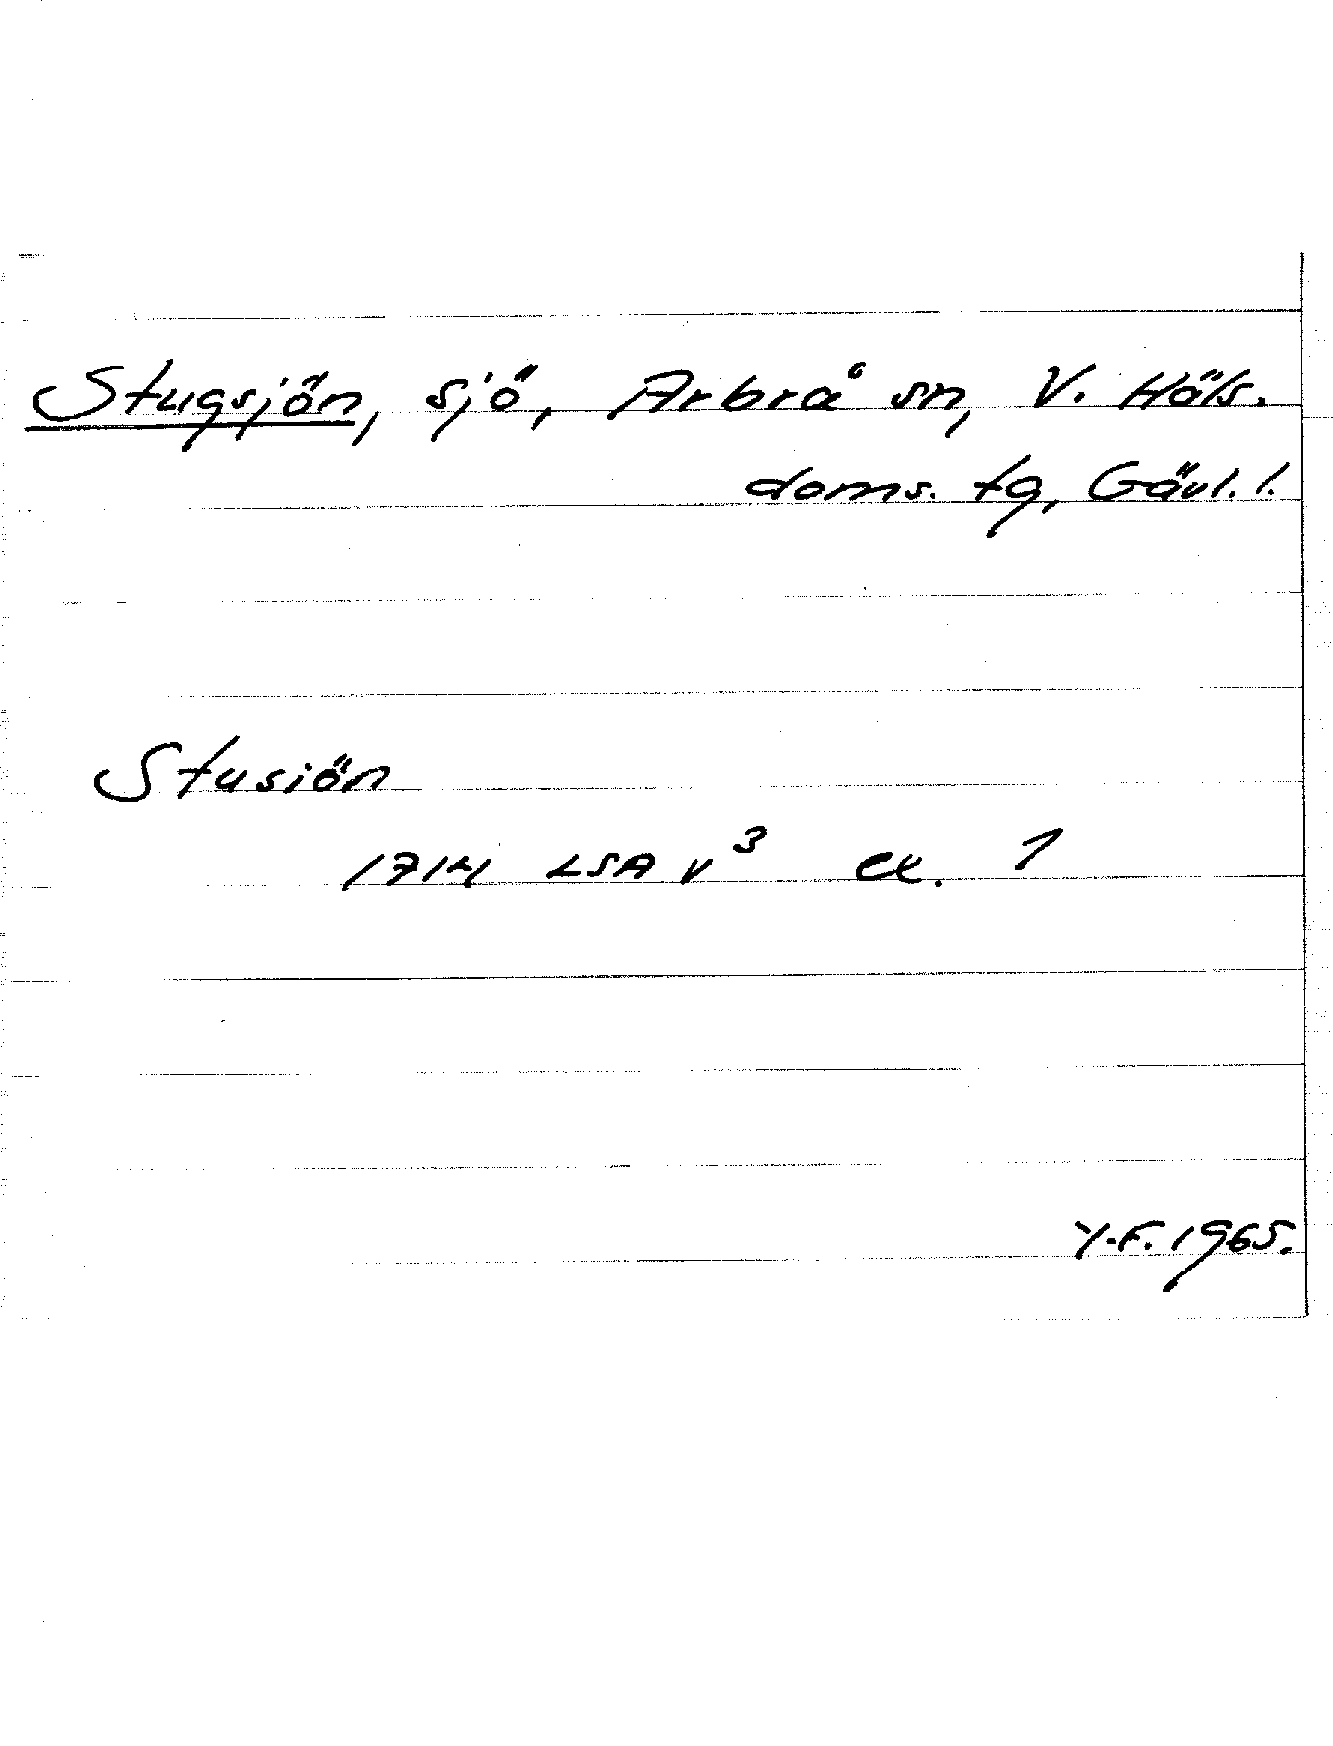 Stugsjön, sjö, Arbrå sn, V. Häls.
doms. tg, Gävl. l.
Stusiön
1714 LSA V³ ex. 1
Y.F. 1965.